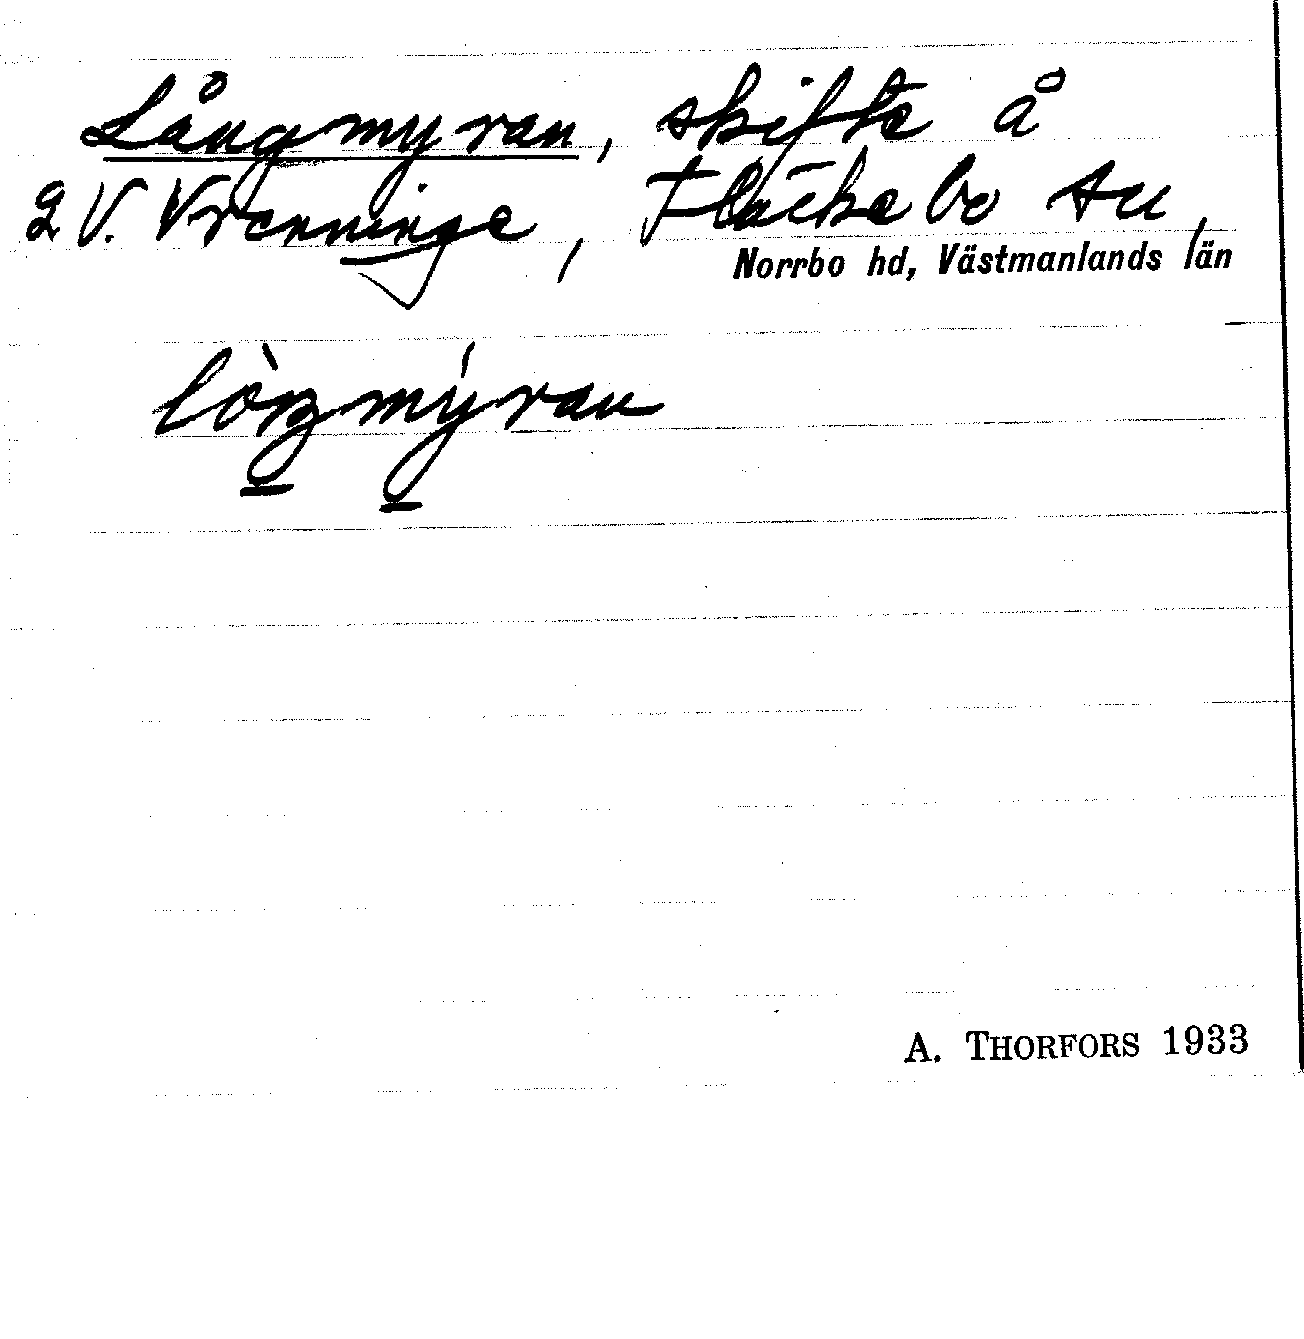 Långmyran, skifte å
2 V. Vrenninge, Fläckebo sn,
Norrbo hd, Västmanlands län
A. THORFORS 1933